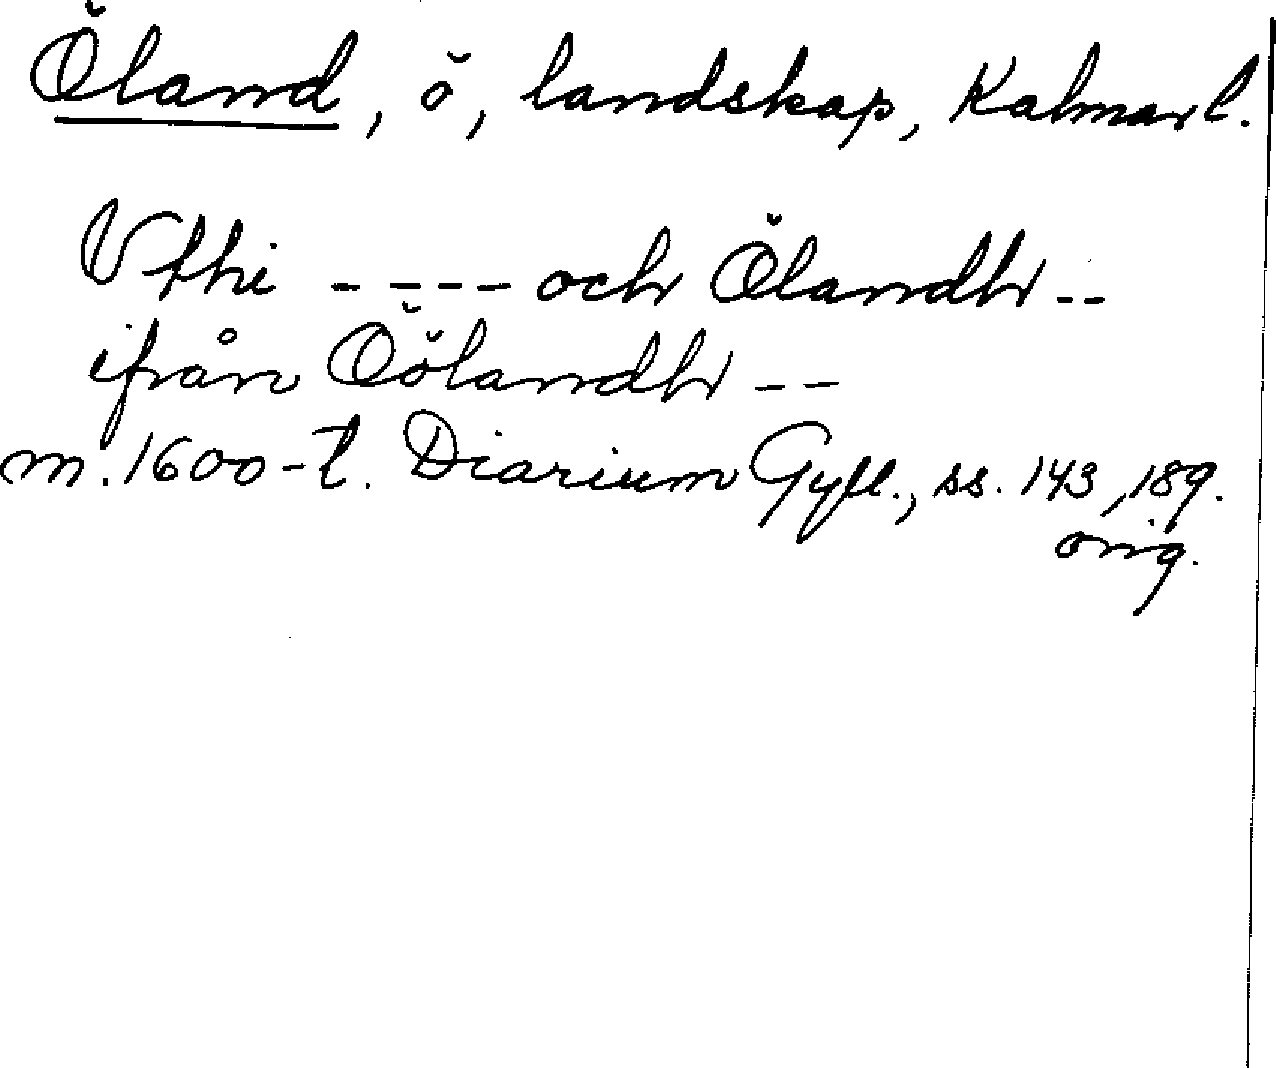 Öland, ö, landskap, Kalmar l.
Vthi ---- och Ölandh --
ifrån Öölandh --
m. 1600-t. Diarium Gyll., ss. 143, 189.
orig.